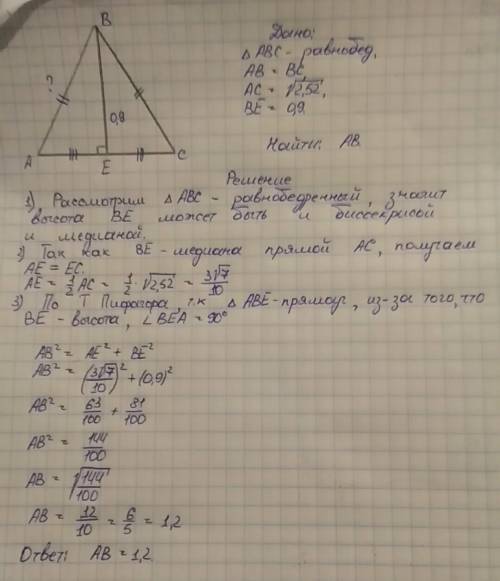 B
?
0,9
A
E
C
Дано:
△ ABC - равнобед.
AB = BC,
AC = √2,52,
BE = 0,9.
Найти: AB
Решение
1) Рассмотрим △ ABC - равнобедренный, значит
высота BE может быть и биссекрисой
и медианой.
2) Так как BE - медиана прямой AC, получаем
AE = EC,
AE = 1/2 AC = 1/2 · √2,52 = 3√7/10
3) По Т Пифагора, т.к △ ABE - прямоуг, из-за того, что
BE - высота, ∠ BEA = 90°
AB² = AE² + BE²
AB² = (3√7/10)² + (0,9)²
AB² = 63/100 + 81/100
AB² = 144/100
AB = √144/100
AB = 12/10 = 6/5 = 1,2
Ответ: AB = 1,2